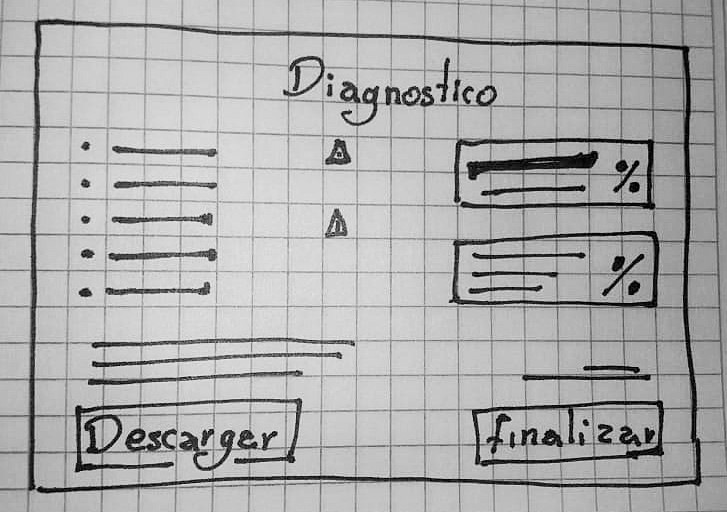 Diagnostico
%
%
Descarger
finalizar